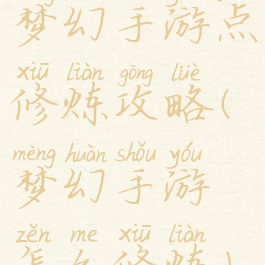 梦幻手游点
xiū liàn gōng lüè
修炼攻略(
mèng huàn shǒu yóu
梦幻手游
zěn me xiū liàn
怎么修炼)